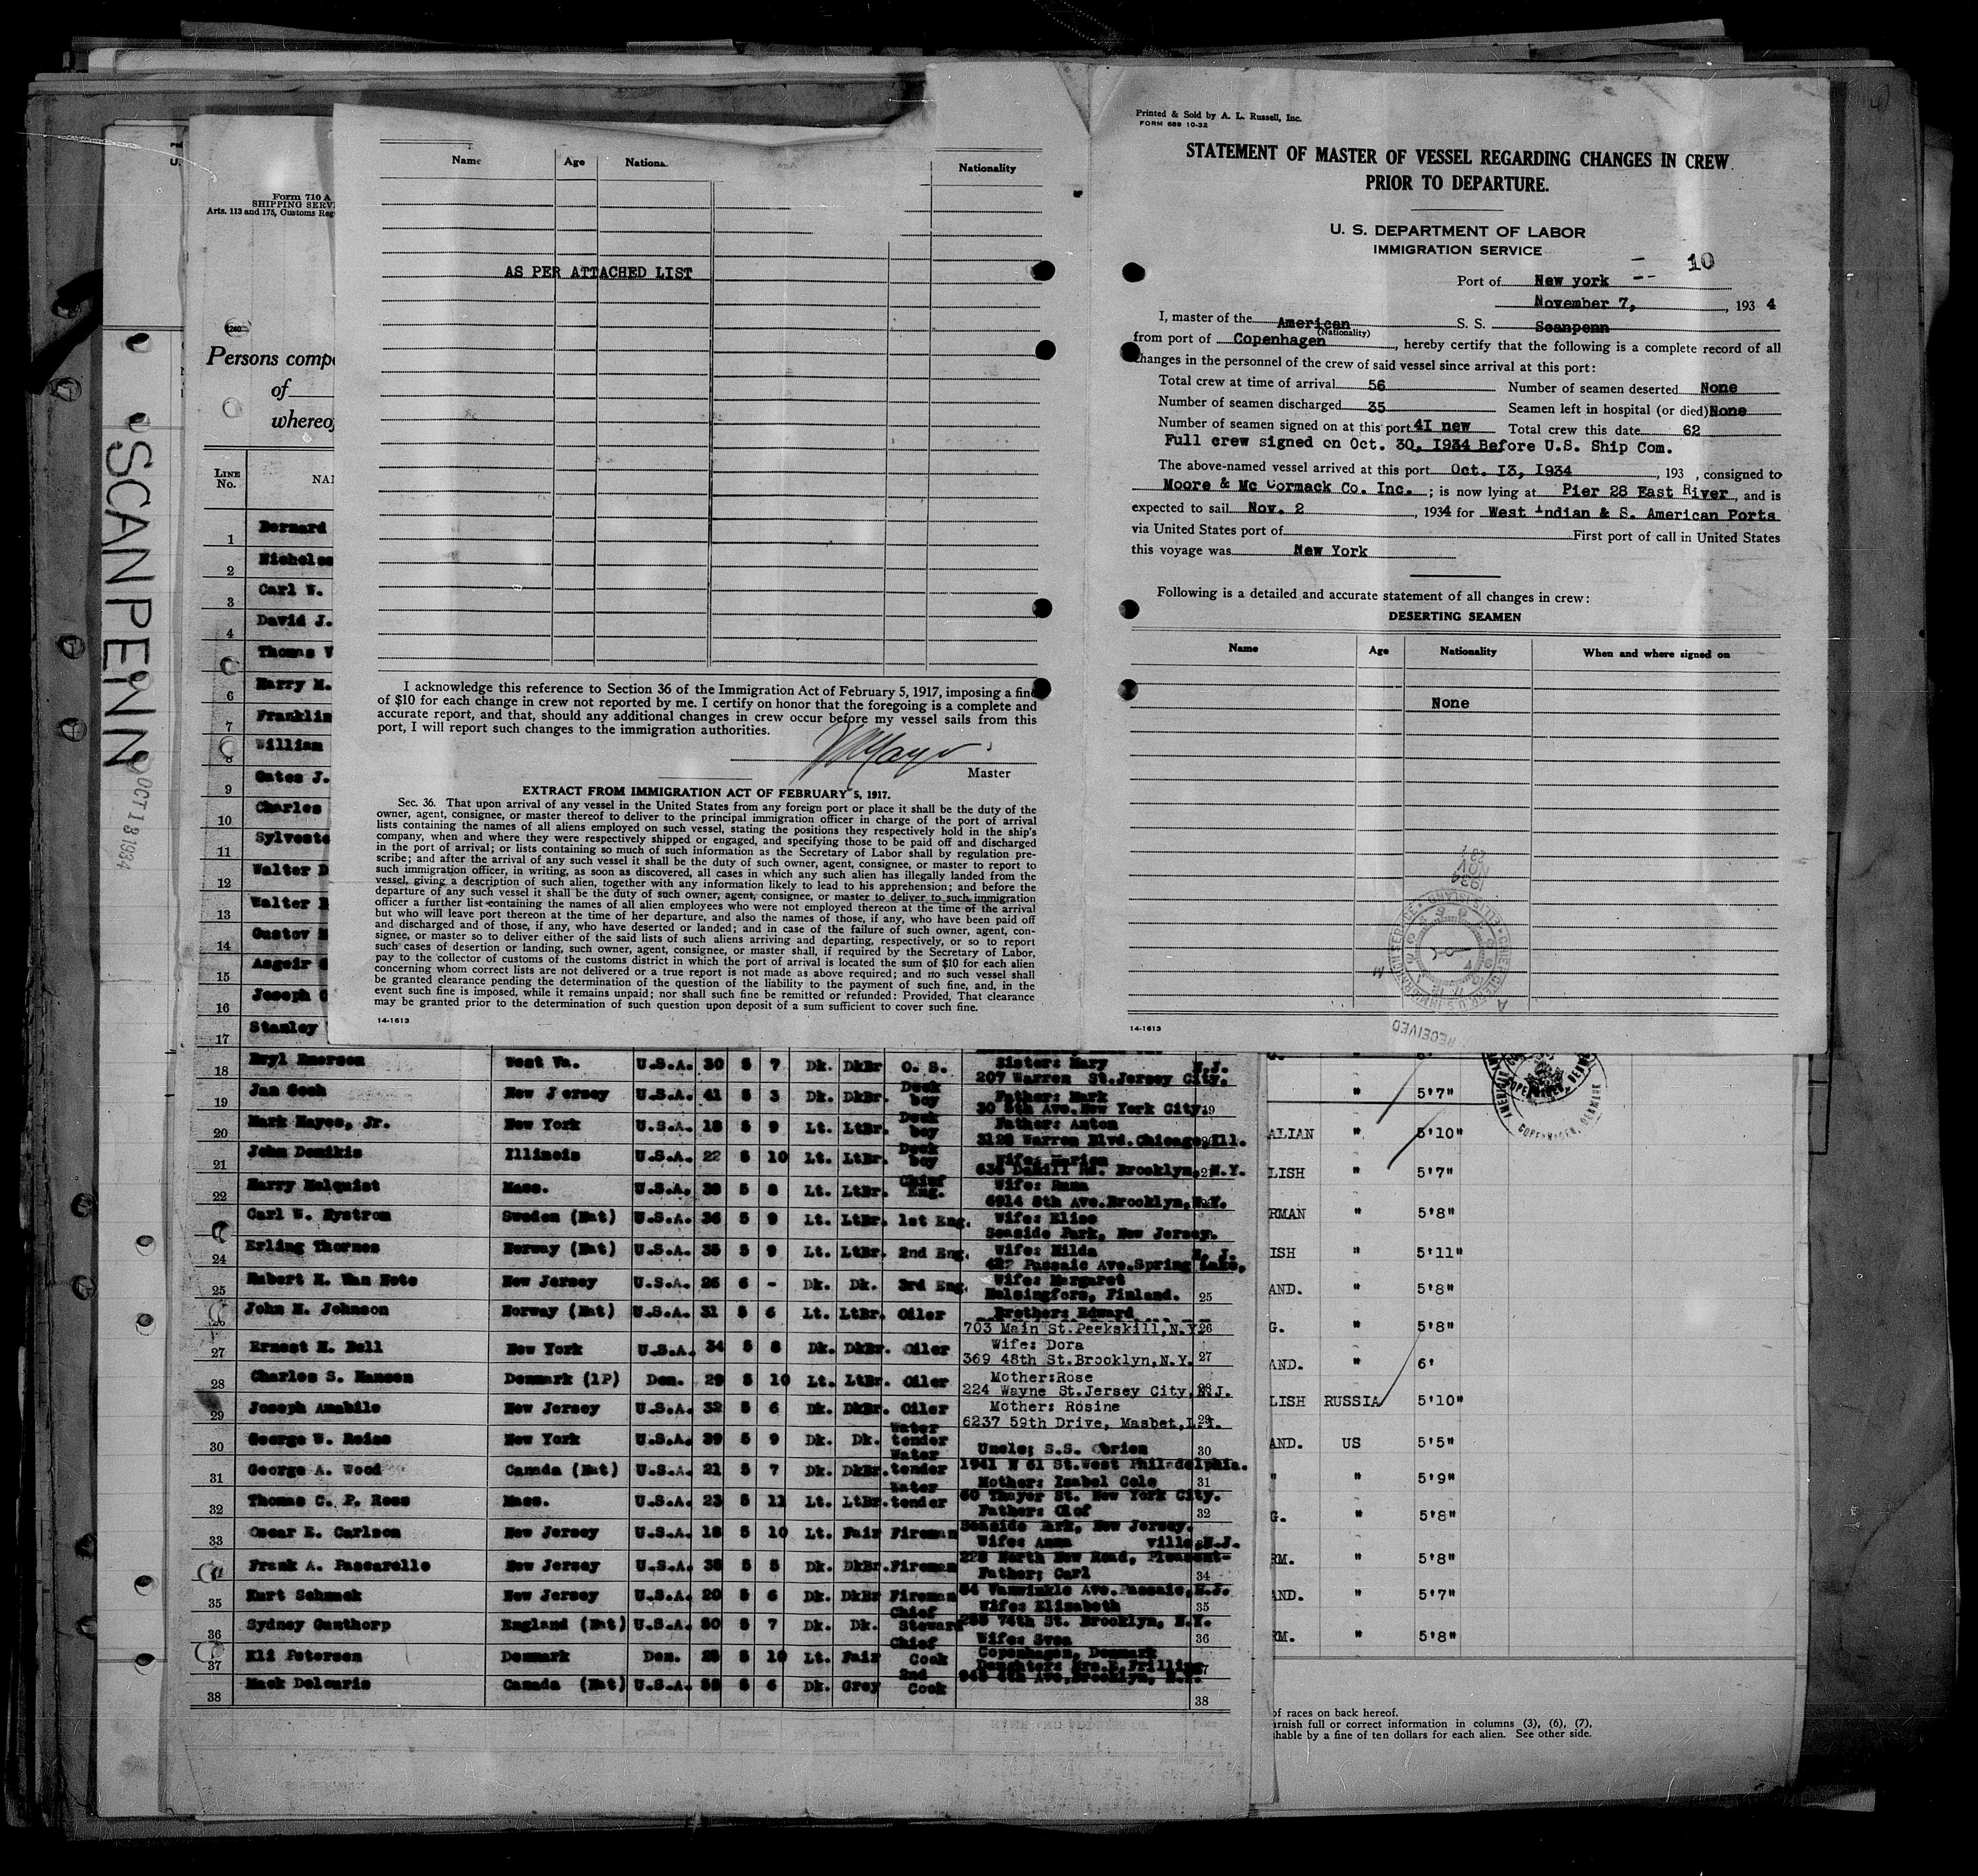 Printed & Sold by A. L. Russell, Inc.
FORM 689 10-32
STATEMENT OF MASTER OF VESSEL REGARDING CHANGES IN CREW
PRIOR TO DEPARTURE.
U. S. DEPARTMENT OF LABOR
IMMIGRATION SERVICE
10
Port of New york
November 7, 193 4
I, master of the American S. S. Scanpenn
(Nationality)
from port of Copenhagen, hereby certify that the following is a complete record of all
changes in the personnel of the crew of said vessel since arrival at this port:
Total crew at time of arrival 56 Number of seamen deserted None
Number of seamen discharged 35 Seamen left in hospital (or died) None
Number of seamen signed on at this port 4I new Total crew this date 62
Full crew signed on Oct. 30, I934 Before U.S. Ship Com.
The above-named vessel arrived at this port Oct. I3, I934, 193 , consigned to
Moore & Mc Cormack Co. Inc. ; is now lying at Pier 28 East River, and is
expected to sail Nov. 2, 1934 for West Indian & S. American Ports
via United States port of First port of call in United States
this voyage was New York
Following is a detailed and accurate statement of all changes in crew:
DESERTING SEAMEN
Name Age Nationality When and where signed on
None
1934
NOV
RECEIVED
14-1613
Name Age Nationa. Nationality
AS PER ATTACHED LIST
I acknowledge this reference to Section 36 of the Immigration Act of February 5, 1917, imposing a fine
of $10 for each change in crew not reported by me. I certify on honor that the foregoing is a complete and
accurate report, and that, should any additional changes in crew occur before my vessel sails from this
port, I will report such changes to the immigration authorities.
Master
EXTRACT FROM IMMIGRATION ACT OF FEBRUARY 5, 1917.
Sec. 36. That upon arrival of any vessel in the United States from any foreign port or place it shall be the duty of the
owner, agent, consignee, or master thereof to deliver to the principal immigration officer in charge of the port of arrival
lists containing the names of all aliens employed on such vessel, stating the positions they respectively hold in the ship's
company, when and where they were respectively shipped or engaged, and specifying those to be paid off and discharged
in the port of arrival; or lists containing so much of such information as the Secretary of Labor shall by regulation pre-
scribe; and after the arrival of any such vessel it shall be the duty of such owner, agent, consignee, or master to report to
such immigration officer, in writing, as soon as discovered, all cases in which any such alien has illegally landed from the
vessel, giving a description of such alien, together with any information likely to lead to his apprehension; and before the
departure of any such vessel it shall be the duty of such owner, agent, consignee, or master to deliver to such immigration
officer a further list containing the names of all alien employees who were not employed thereon at the time of the arrival
but who will leave port thereon at the time of her departure, and also the names of those, if any, who have been paid off
and discharged and of those, if any, who have deserted or landed; and in case of the failure of such owner, agent, con-
signee, or master so to deliver either of the said lists of such aliens arriving and departing, respectively, or so to report
such cases of desertion or landing, such owner, agent, consignee, or master shall, if required by the Secretary of Labor,
pay to the collector of customs of the customs district in which the port of arrival is located the sum of $10 for each alien
concerning whom correct lists are not delivered or a true report is not made as above required; and no such vessel shall
be granted clearance pending the determination of the question of the liability to the payment of such fine, and, in the
event such fine is imposed, while it remains unpaid; nor shall such fine be remitted or refunded: Provided, That clearance
may be granted prior to the determination of such question upon deposit of a sum sufficient to cover such fine.
14-1613
SCANPENN
OCT 13 1934
Form 710 A
SHIPPING SERV
Arts. 113 and 175, Customs Reg
Persons comp
of
whereof
LINE
No.
NA
1 Bernard
2 Nicholas
3 Carl W.
4 David J.
Thomas
6 Harry M.
7 Franklin
8 William
9 Oates J.
10 Charles
11 Sylveste
12 Walter
13 Walter
14 Gustov
15 Asgeir
16 Joseph
17 Stanley
18 Beyl Emerson West Va. U.S.A. 30 5 7 Dk. DkBr O. S. Sister: Mary N.J.
207 Warren St.Jersey City.
19 Jan Goch New Jersey U.S.A. 41 5 3 Dk. DkBr. Deck boy Father: Mark
30 5th Ave.New York City. 19
20 Mark Hayes, Jr. New York U.S.A. 18 5 9 Lt. LtBr. Deck boy Father: Anton
3128 Warren Blvd.Chicago,Ill.
21 John Domikis Illinois U.S.A. 22 5 10 Lt. LtBr. Deck boy Wife: Marion
Brooklyn, N.Y.
22 Harry Malquist Mass. U.S.A. 38 5 8 Lt. LtBr. Chief Eng. Wife: Anna
6914 8th Ave.Brooklyn,N.Y.
Carl W. Nystrom Sweden (Nat) U.S.A. 36 5 9 Lt. LtBr. 1st Eng. Wife: Elise
Seaside Park, New Jersey.
24 Erling Thornes Norway (Nat) U.S.A. 35 5 9 Lt. LtBr. 2nd Eng. Wife: Hilda N. J.
Passaic Ave.Spring Lake,
25 Robert H. Van Note New Jersey U.S.A. 26 6 - Dk. Dk. 3rd Eng. Wife: Margaret
Helsingfors, Finland. 25
26 John H. Johnson Norway (Nat) U.S.A. 31 5 6 Lt. LtBr. Oiler Brother: Edward
703 Main St.Peekskill,N.Y. 26
27 Ernest H. Bell New York U.S.A. 34 5 8 Dk. DkBr. Oiler Wife: Dora
369 48th St.Brooklyn,N.Y. 27
28 Charles S. Hansen Denmark (1P) Den. 29 5 10 Lt. LtBr. Oiler Mother:Rose
224 Wayne St.Jersey City,N.J.
29 Joseph Amabile New Jersey U.S.A. 32 5 6 Dk. DkBr. Oiler Mother: Rosine
6237 59th Drive, Masbet,L.I. 29
30 George W. Reiss New York U.S.A. 39 5 9 Dk. Dk. Water tender Uncle; S.S. Obrien 30
31 George A. Wood Canada (Nat) U.S.A. 21 5 7 Dk. DkBr. Water tender 1941 N 61 St.West Philadelphia.
Mother: Isabel Cole 31
32 Thomas C. P. Ross Mass. U.S.A. 23 5 11 Lt. LtBr. Water tender 60 Thayer St. New York City.
Father: Olof 32
33 Oscar E. Carlson New Jersey U.S.A. 18 5 10 Lt. Fair Fireman Seaside Park, New Jersey.
Wife: Anna ville,N.J.
Frank A. Pascarello New Jersey U.S.A. 38 5 5 Dk. DkBr. Fireman 228 North New Road, Pleasant-
Father; Carl 34
35 Kurt Schmuck New Jersey U.S.A. 20 5 6 Dk. DkBr Fireman 54 Vanwinkle Ave.Passaic,N.J.
Wife: Elizabeth 35
36 Sydney Gunthorp England (Nat) U.S.A. 50 5 7 Dk. Dk. Chief Steward 74th St. Brooklyn, N.Y.
Wife: Svea 36
37 Eli Petersen Denmark Den. 28 5 10 Lt. Fair Chief Cook Copenhagen, Denmark
Daughter: Mrs.E.Frilling 37
38 Mack Delouris Canada (Nat) U.S.A. 55 5 6 Dk. Grey 2nd Cook 945 4th Ave,Brooklyn, N.Y. 38
" 5'7"
ALIAN " 5'10"
LISH " 5'7"
RMAN " 5'8"
ISH " 5'11"
AND. " 5'8"
G. " 5'8"
AND. " 6'
LISH RUSSIA 5'10"
AND. US 5'5"
" " 5'9"
G. " 5'8"
RM. " 5'8"
AND. " 5'7"
RM. " 5'8"
COPENHAGEN, DENMARK
of races on back hereof.
urnish full or correct information in columns (3), (6), (7),
hable by a fine of ten dollars for each alien. See other side.